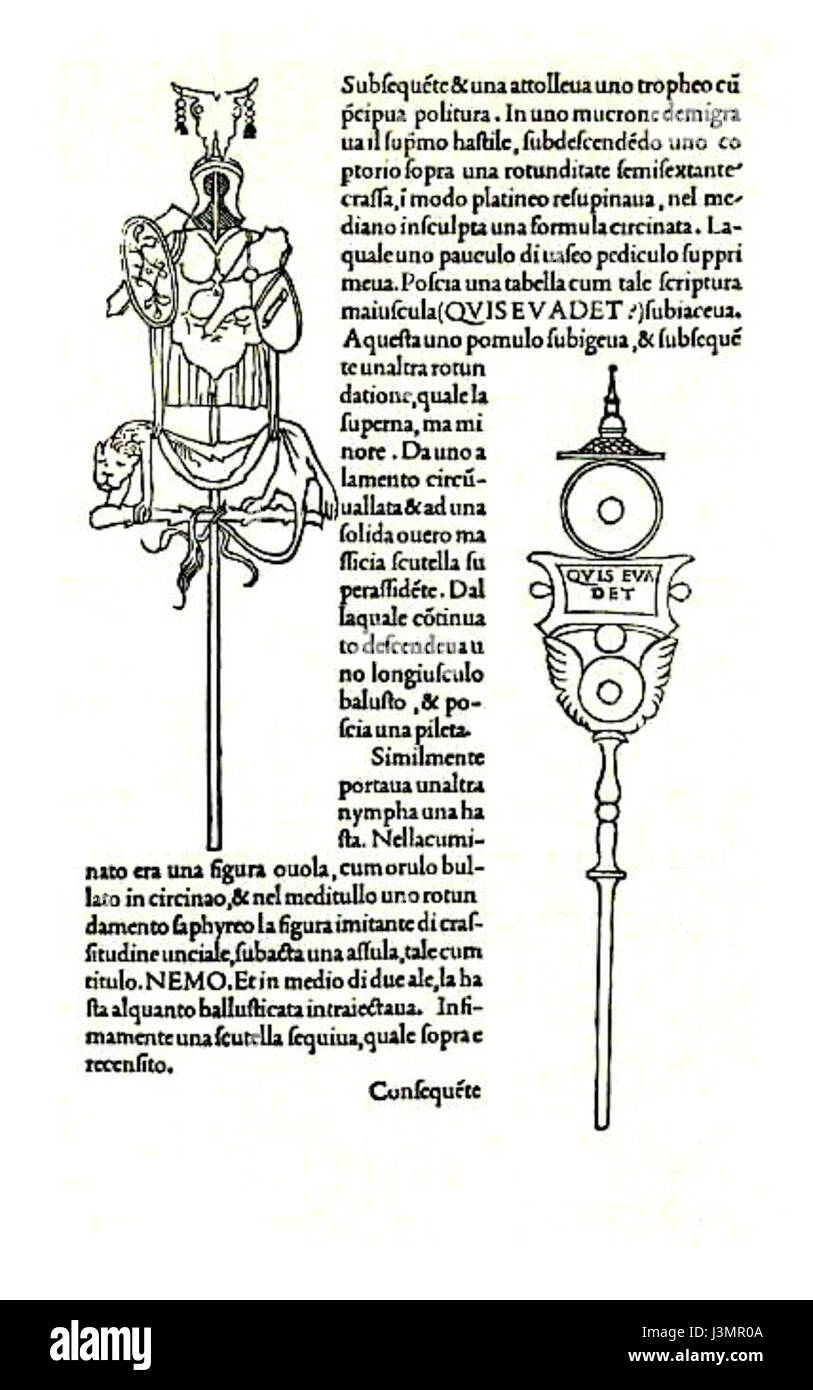 Subſequẽte & una attolleua uno tropheo cũ
p̃cipua politura. In uno mucrone demigra
ua il ſup̃mo haſtile, ſubdeſcendẽdo uno co
ptorio ſopra una rotunditate ſemiſextante
craſſa, ĩ modo platineo reſupinaua, nel me-
diano inſculpta una formula circinata. La-
quale uno pauculo di uaſeo pediculo ſuppri
meua. Poſcia una tabella cum tale ſcriptura
maiuſcula (QVIS EVADET?) ſubiaceua.
Aqueſta uno pomulo ſubigeua, & ſubſequẽ
te unaltra rotun
datione, quale la
ſuperna, ma mi
nore. Da uno a
lamento circũ-
uallata & ad una
ſolida ouero ma
ſſicia ſcutella ſu
peraſſidẽte. Dal
laquale cõtinua
to deſcendeua u
no longiuſculo
baluſto, & po-
ſcia una pileta.
Similmente
portaua unaltra
nympha una ha
ſta. Nellacumi-
nato era una figura ouola, cum orulo bul-
lato in circinao, & nel meditullo uno rotun
damento ſaphyreo la figura imitante di craſ-
ſitudine unciale, ſubacta una aſſula, tale cum
titulo. NEMO. Et in medio di due ale, la ha
ſta alquanto balluſticata intraiectaua. Infi-
mamente una ſcutella ſequiua, quale ſopra e
recenſito.
Conſequẽte
QVIS EVA
DET
alamy
Image ID: J3MR0A
www.alamy.com